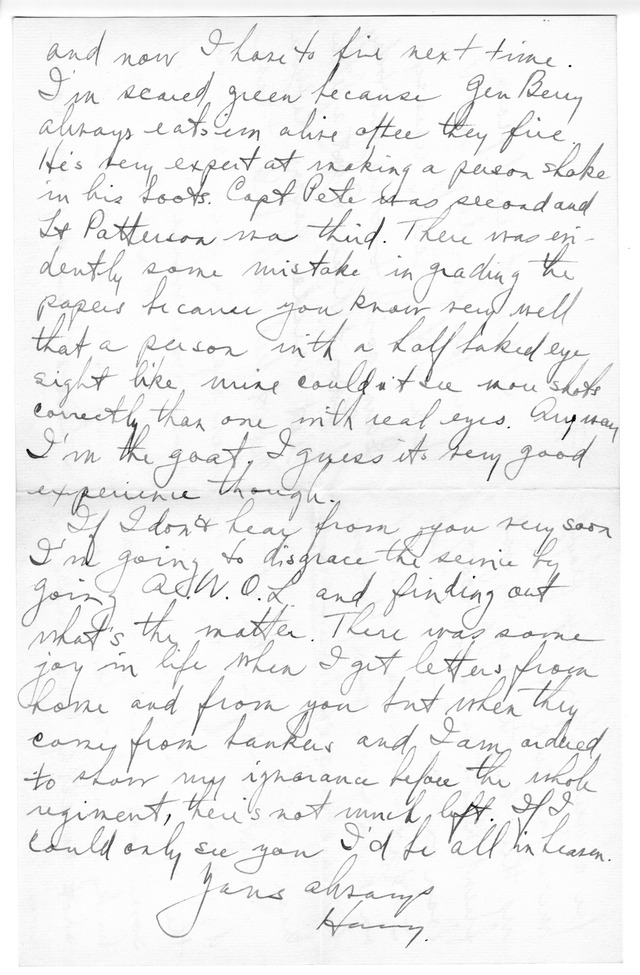 and now I have to fire next time.
I'm scared green because Gen Berry
always eats em alive after they fire.
He's very expert at making a person shake
in his boots. Capt Pete was second and
Lt Patterson was third. There was evi-
dently some mistake in grading the
papers because you know very well
that a person with a half baked eye
sight like mine couldn't see more shots
correctly than one with real eyes. Anyway
I'm the goat. I guess its very good
experience though.
If I don't hear from you very soon
I'm going to disgrace the service by
going A.W.O.L. and finding out
what's the matter. There was some
joy in life when I got letters from
home and from you but when they
come from bankers and I am ordered
to show my ignorance before the whole
regiment, there's not much left. If I
could only see you I'd be all in heaven.
Yours always
Harry.